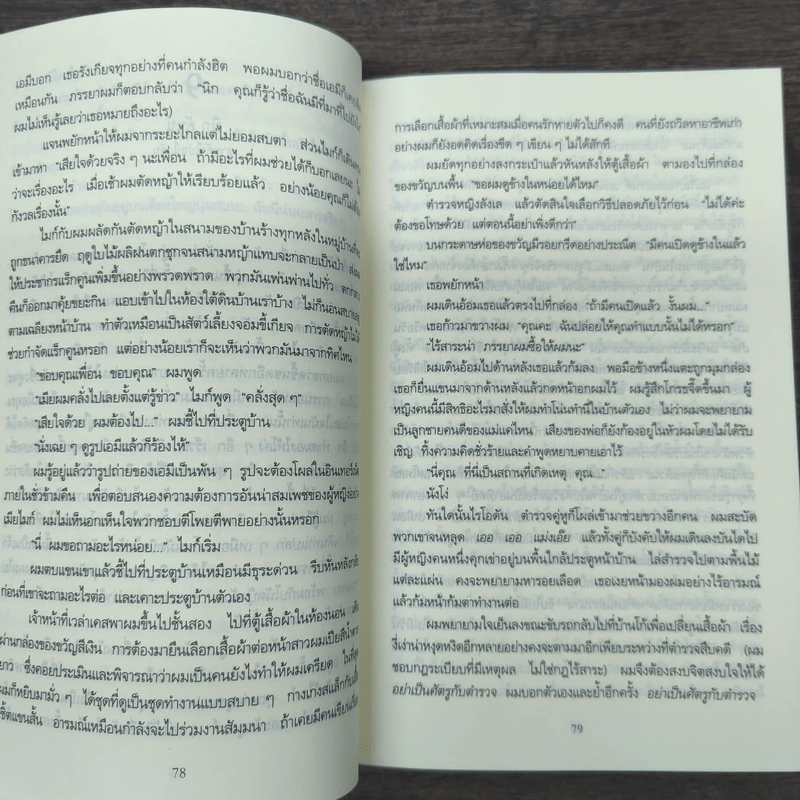 เอมีบอก เธอรังเกียจทุกอย่างที่คนกำลังฮิต พอผมบอกว่าชื่อเอมีก็เคย
เหมือนกัน ภรรยาผมก็ตอบกลับว่า “นิก คุณก็รู้ว่าชื่อฉันมีที่มาที่ไป
ผมไม่เห็นรู้เลยว่าเธอหมายถึงอะไร)
แจนพยักหน้าให้ผมจากระยะไกลแต่ไม่ยอมสบตา ส่วนไมก์ก็เดิน
เข้ามาหา “เสียใจด้วยจริง ๆ นะเพื่อน ถ้ามีอะไรที่ผมช่วยได้ก็บอกเลยนะ ไม่
ว่าจะเรื่องอะไร เมื่อเช้าผมตัดหญ้าให้เรียบร้อยแล้ว อย่างน้อยคุณก็ไม่
กังวลเรื่องนั้น”
ไมก์กับผมผลัดกันตัดหญ้าในสนามของบ้านร้างทุกหลังในหมู่บ้านที่
ถูกธนาคารยึด ฤดูใบไม้ผลิฝนตกชุกจนสนามหญ้าแทบจะกลายเป็นป่า ส่งผล
ให้ประชากรแร็กคูนเพิ่มขึ้นอย่างพรวดพราด พวกมันเพ่นพ่านไปทั่ว ตกกลาง
คืนก็ออกมาคุ้ยขยะกิน แอบเข้าไปในห้องใต้ดินบ้านเราบ้าง ไม่ก็นอนสบาย
ตามเฉลียงหน้าบ้าน ทำตัวเหมือนเป็นสัตว์เลี้ยงจอมขี้เกียจ การตัดหญ้าไม่ได้
ช่วยกำจัดแร็กคูนหรอก แต่อย่างน้อยเราก็จะเห็นว่าพวกมันมาจากทิศไหน
“ขอบคุณเพื่อน ขอบคุณ” ผมพูด
“เมียผมคลั่งไปเลยตั้งแต่รู้ข่าว” ไมก์พูด “คลั่งสุด ๆ”
“เสียใจด้วย ผมต้องไป...” ผมชี้ไปที่ประตูบ้าน
“นั่งเฉย ๆ ดูรูปเอมีแล้วก็ร้องไห้”
ผมรู้อยู่แล้วว่ารูปถ่ายของเอมีเป็นพัน ๆ รูปจะต้องโผล่ในอินเทอร์เน็ต
ภายในชั่วข้ามคืน เพื่อตอบสนองความต้องการอันน่าสมเพชของผู้หญิงอย่าง
เมียไมก์ ผมไม่เห็นอกเห็นใจพวกชอบตีโพยตีพายอย่างนั้นหรอก
“นี่ ผมขอถามอะไรหน่อย...” ไมก์เริ่ม
ผมตบแขนเขาแล้วชี้ไปที่ประตูบ้านเหมือนมีธุระด่วน รีบหันหลัง
ก่อนที่เขาจะถามอะไรต่อ และเคาะประตูบ้านตัวเอง
เจ้าหน้าที่เวลาเคสพาผมขึ้นไปชั้นสอง ไปที่ตู้เสื้อผ้าในห้องนอน เดิน
ผ่านกล่องของขวัญสีเงิน การต้องมายืนเลือกเสื้อผ้าต่อหน้าสาวผมเปียสีน้ำตาล
ยาว ซึ่งคอยประเมินและพิจารณาว่าผมเป็นคนยังไงทำให้ผมเครียด ในที่สุด
ผมก็หยิบมามั่ว ๆ ได้ชุดที่ดูเป็นชุดทำงานแบบสบาย ๆ กางเกงสแล็กกับเสื้อ
เชิ้ตแขนสั้น อารมณ์เหมือนกำลังจะไปร่วมงานสัมมนา ถ้าเคยมีคนเขียน
78
การเลือกเสื้อผ้าที่เหมาะสมเมื่อคนรักหายตัวไปก็คงดี คนที่ยังถวิลหาอาชีพเก่า
อย่างผมก็ยังอดคิดเรื่องขีด ๆ เขียน ๆ ไม่ได้สักที
ผมยัดทุกอย่างลงกระเป๋าแล้วหันหลังให้ตู้เสื้อผ้า ตามองไปที่กล่อง
ของขวัญบนพื้น “ขอผมดูข้างในหน่อยได้ไหม”
ตำรวจหญิงลังเล แล้วตัดสินใจเลือกวิธีปลอดภัยไว้ก่อน “ไม่ได้ค่ะ
ต้องขอโทษด้วย แต่ตอนนี้อย่าเพิ่งดีกว่า”
บนกระดาษห่อของขวัญมีรอยกรีดอย่างประณีต “มีคนเปิดดูข้างในแล้ว
ใช่ไหม”
เธอพยักหน้า
ผมเดินอ้อมเธอแล้วตรงไปที่กล่อง “ถ้ามีคนเปิดแล้ว งั้นผม...”
เธอก้าวมาขวางผม “คุณคะ ฉันปล่อยให้คุณทำแบบนั้นไม่ได้หรอก”
“ไร้สาระน่า ภรรยาผมซื้อให้ผมนะ”
ผมเดินอ้อมไปด้านหลังเธอแล้วก้มลง พอมือข้างหนึ่งแตะถูกมุมกล่อง
เธอก็ยื่นแขนมาจากด้านหลังแล้วกดหน้าอกผมไว้ ผมรู้สึกโกรธจี๊ดขึ้นมา ผู้
หญิงคนนี้มีสิทธิอะไรมาสั่งให้ผมทำโน่นทำนี่ในบ้านตัวเอง ไม่ว่าผมจะพยายาม
เป็นลูกชายคนดีของแม่แค่ไหน เสียงของพ่อก็ยังก้องอยู่ในหัวผมโดยไม่ได้รับ
เชิญ ทิ้งความคิดชั่วร้ายและคำพูดหยาบคายเอาไว้
“นี่คุณ ที่นี่เป็นสถานที่เกิดเหตุ คุณ...”
นังโง่
ทันใดนั้นไรโอดัน ตำรวจคู่หูก็โผล่เข้ามาช่วยขวางอีกคน ผมสะบัด
พวกเขาจนหลุด เออ เออ แม่งเอ๊ย แล้วทั้งคู่ก็บังคับให้ผมเดินลงบันไดไป
มีผู้หญิงคนหนึ่งคุกเข่าอยู่บนพื้นใกล้ประตูหน้าบ้าน ไล่สำรวจไปตามพื้นไม้
แต่ละแผ่น คงจะพยายามหารอยเลือด เธอเงยหน้ามองผมอย่างไร้อารมณ์
แล้วก้มหน้าก้มตาทำงานต่อ
ผมพยายามใจเย็นลงขณะขับรถกลับไปที่บ้านโก้เพื่อเปลี่ยนเสื้อผ้า เรื่อง
งี่เง่าน่าหงุดหงิดอีกหลายอย่างจะตามมาอีกเพียบระหว่างที่ตำรวจสืบคดี (ผม
ชอบกฎระเบียบที่มีเหตุผล ไม่ใช่กฎไร้สาระ) ผมจึงต้องสงบจิตสงบใจให้ได้
อย่าเป็นศัตรูกับตำรวจ ผมบอกตัวเองและย้ำอีกครั้ง อย่าเป็นศัตรูกับตำรวจ
79